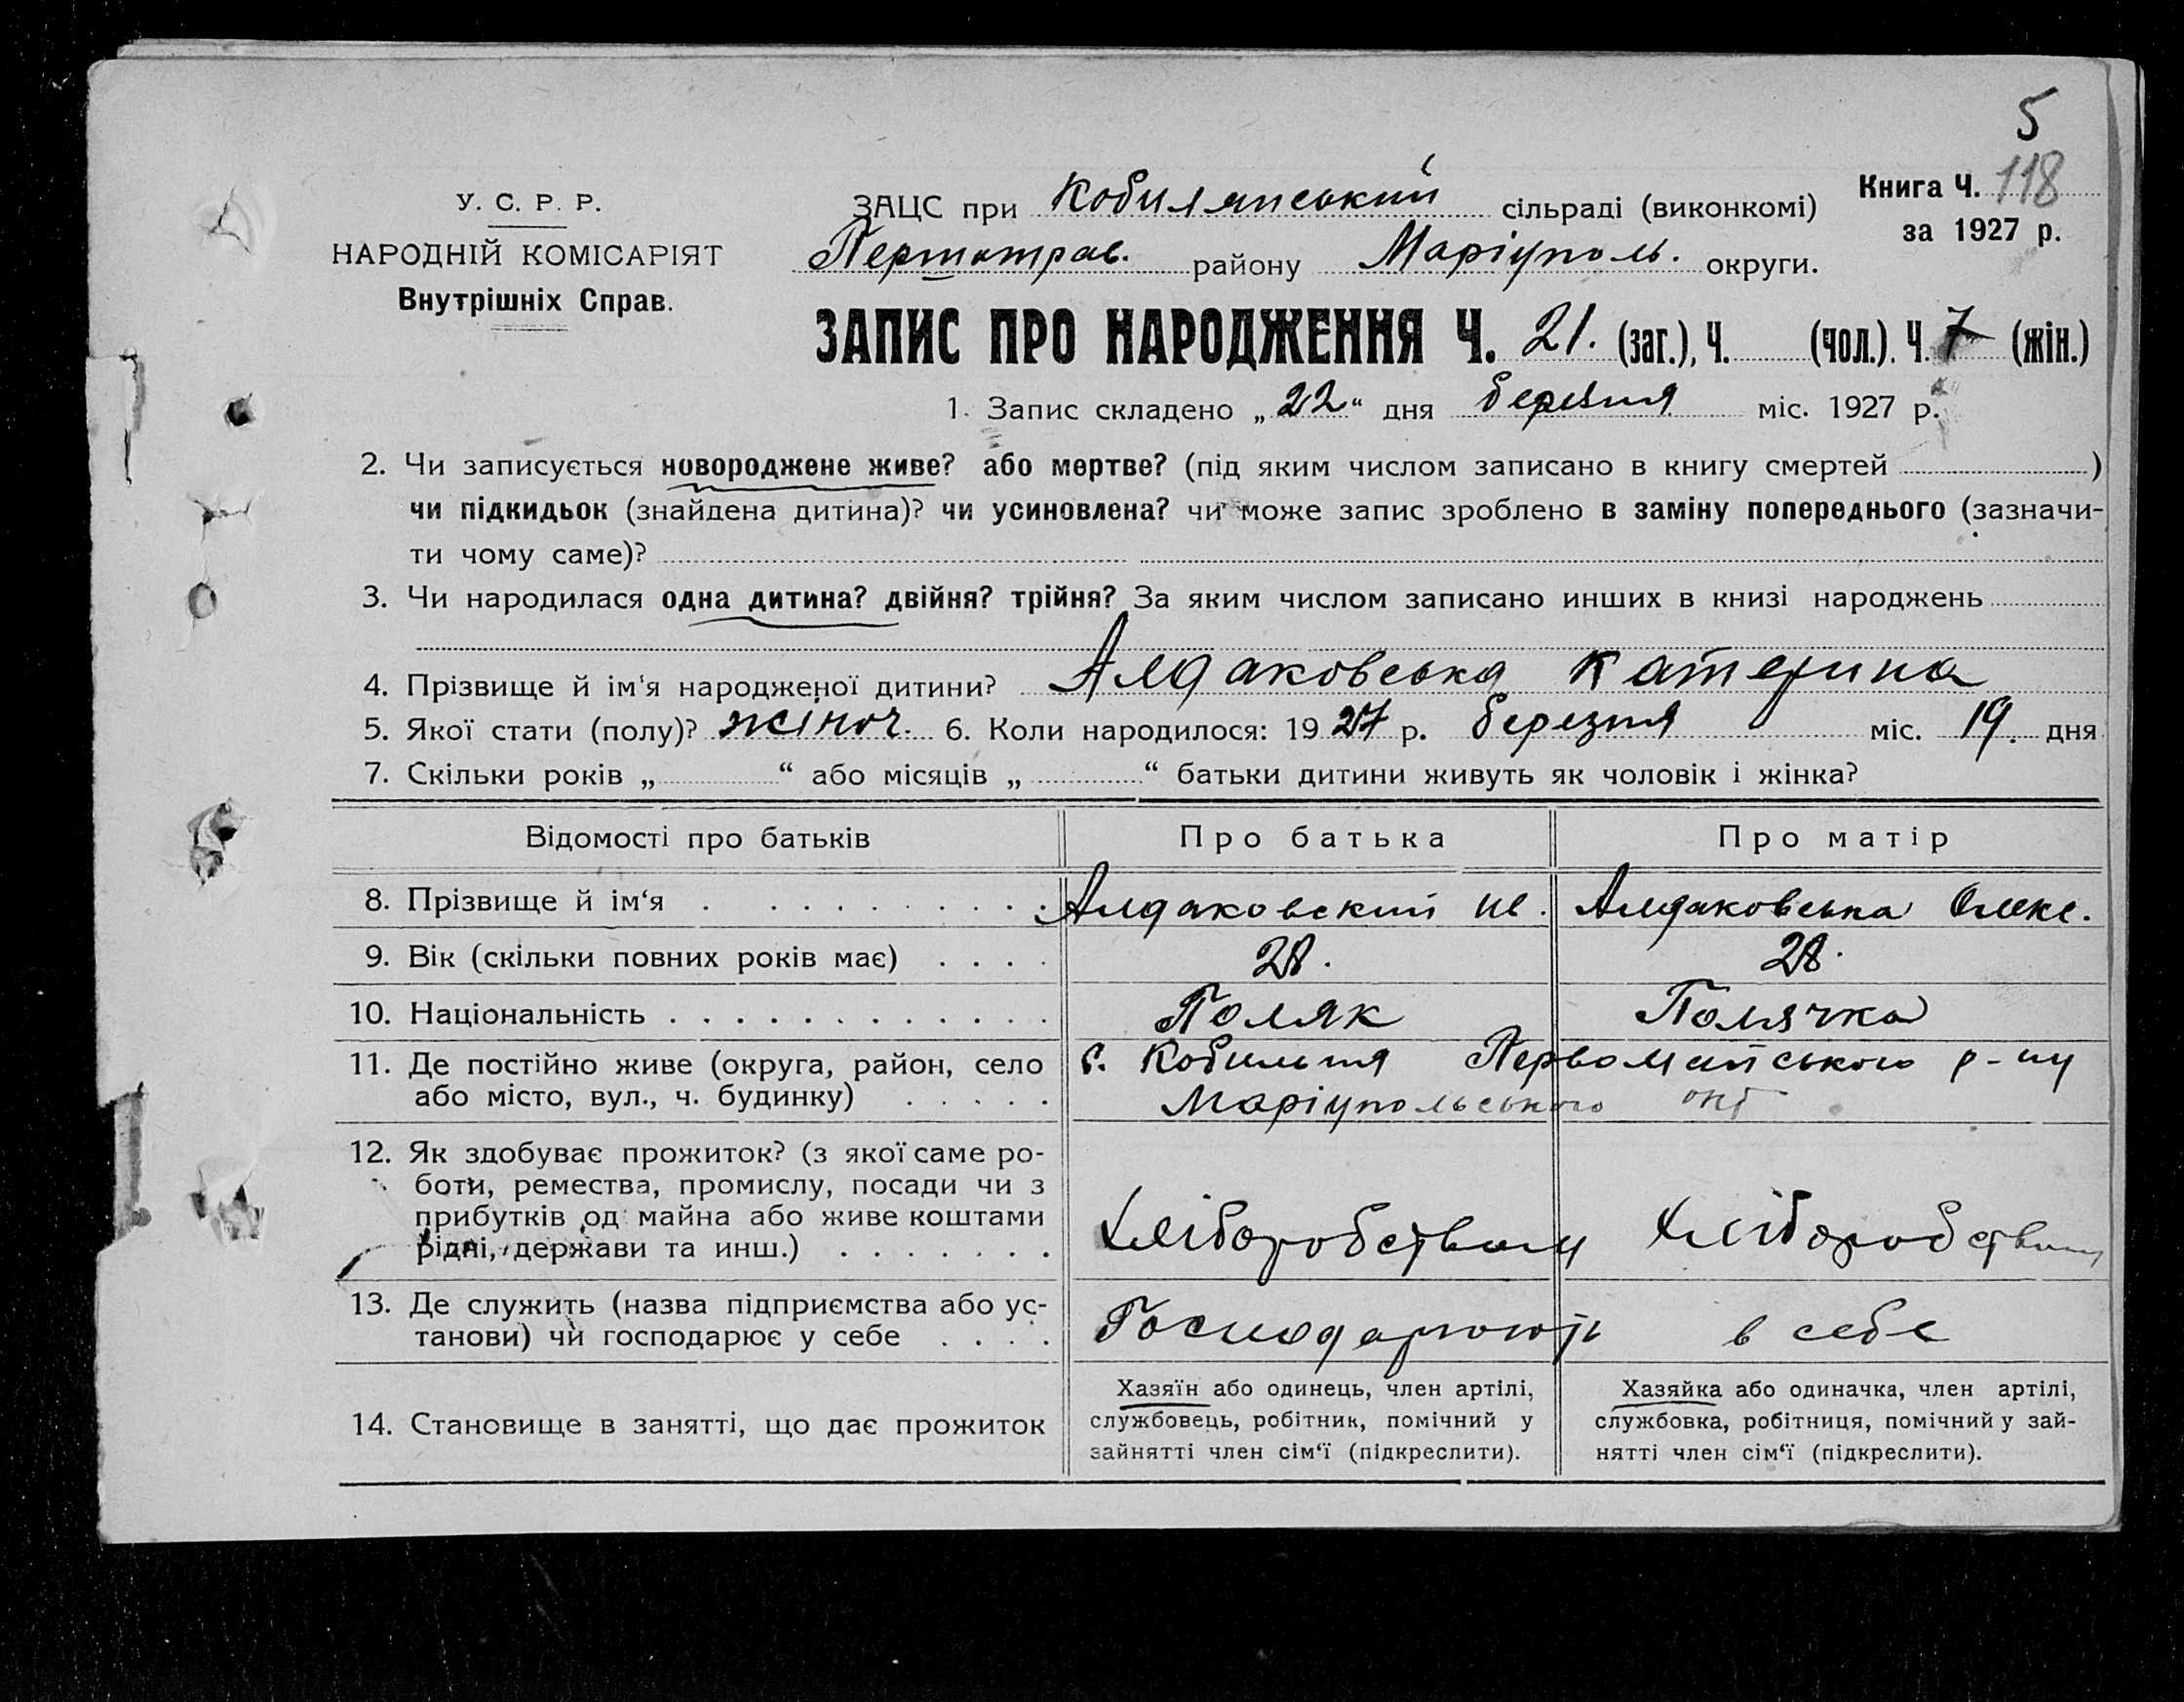 5
У. С. Р. Р.
НАРОДНІЙ КОМІСАРІЯТ
Внутрішніх Справ.
ЗАЦС при Кобилянський сільраді (виконкомі)
Книга Ч. 118
за 1927 р.
Першотрав. району Маріуполь. округи.
ЗАПИС ПРО НАРОДЖЕННЯ Ч. 21. (заг.), Ч. (чол.). Ч. 7 (жін.)
1. Запис складено „22“ дня березня міс. 1927 р.
2. Чи записується новороджене живе? або мертве? (під яким числом записано в книгу смертей )
чи підкидьок (знайдена дитина)? чи усиновлена? чи може запис зроблено в заміну попереднього (зазначи-
ти чому саме)?
3. Чи народилася одна дитина? двійня? трійня? За яким числом записано инших в книзі народжень
4. Прізвище й ім'я народженої дитини? Алдаковська Катерина
5. Якої стати (полу)? жіноч. 6. Коли народилося: 1927 р. березня міс. 19. дня
7. Скільки років „ “ або місяців „ “ батьки дитини живуть як чоловік і жінка?
Відомості про батьків Про батька Про матір
8. Прізвище й ім‘я Алдаковский Ив. Алдаковська Олекс.
9. Вік (скільки повних років має) 28. 28.
10. Національність Поляк Полячка
11. Де постійно живе (округа, район, село с. Кобильня Первомайського р-ну
або місто, вул., ч. будинку) Маріупольського окг
12. Як здобуває прожиток? (з якої саме ро-
боти, ремества, промислу, посади чи з
прибутків од майна або живе коштами
рідні, держави та инш.) Хліборобством Хліборобством
13. Де служить (назва підприємства або ус-
танови) чи господарює у себе Господарюють в себе
14. Становище в занятті, що дає прожиток
Хазяїн або одинець, член артілі,
службовець, робітник, помічний у
зайнятті член сім‘ї (підкреслити).
Хазяйка або одиначка, член артілі,
службовка, робітниця, помічний у зай-
нятті член сім‘ї (підкреслити).